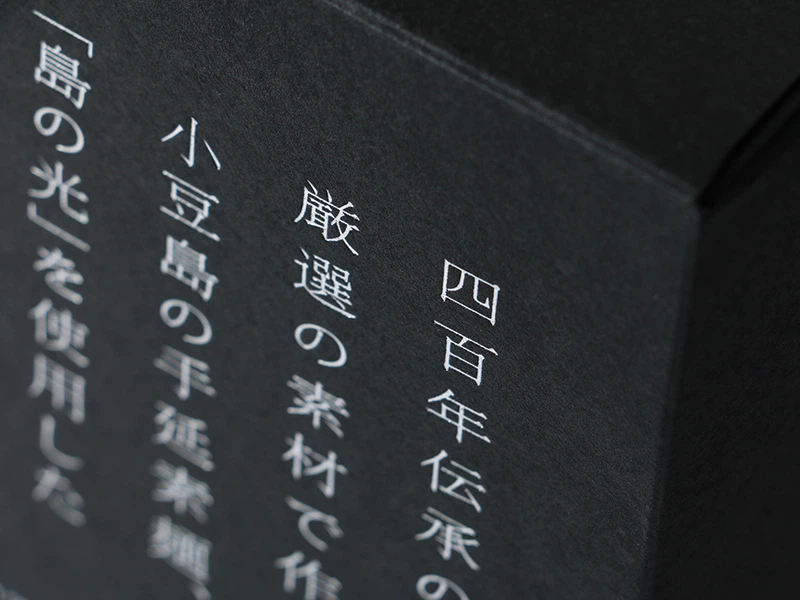 四百年伝承の
厳選の素材で作
小豆島の手延素麺、
「島の光」を使用した